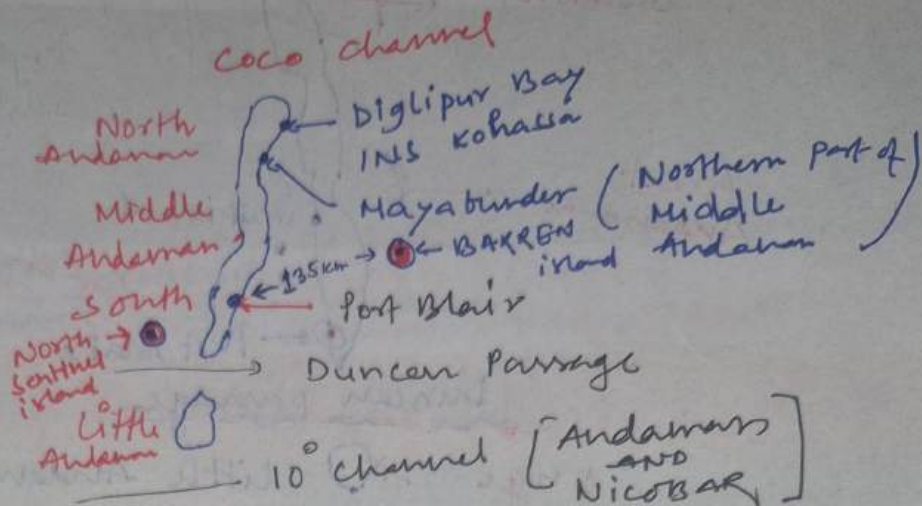 Coco channel
North Andaman
Diglipur Bay
INS Kohassa
Mayabunder (Northern part of Middle Andaman)
Middle Andaman
135 km
BARREN island
South
Port Blair
North Sentinel island
Duncan Passage
Little Andaman
10° Channel [Andamans AND NICOBAR]